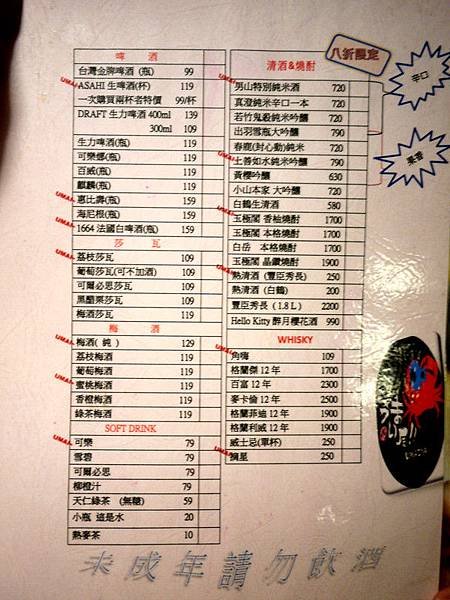 啤 酒
台灣金牌啤酒 (瓶) 99
UMAI
ASAHI 生啤酒(杯) 119
一次購買兩杯者特價 99/杯
DRAFT 生力啤酒 400ml 139
300ml 109
生力啤酒(瓶) 119
可樂娜(瓶) 119
百威(瓶) 119
麒麟(瓶) 119
UMAI
惠比壽(瓶) 159
海尼根(瓶) 159
UMAI
1664 法國白啤酒(瓶) 159
莎 瓦
UMAI
荔枝莎瓦 109
葡萄莎瓦(可不加酒) 109
可爾必思莎瓦 109
黑醋栗莎瓦 109
梅酒莎瓦 119
梅 酒
UMAI
梅酒( 純 ) 129
荔枝梅酒 119
葡萄梅酒 119
UMAI
蜜桃梅酒 119
香橙梅酒 119
綠茶梅酒 119
SOFT DRINK
UMAI
可樂 79
雪碧 79
可爾必思 79
柳橙汁 79
天仁綠茶 (無糖) 59
小瓶 這是水 20
熱麥茶 10
清酒&燒酎
八折限定
UMAI
男山特別純米酒 720
真澄純米辛口一本 720
若竹鬼殺純米吟釀 720
出羽雪瓶大吟釀 790
春鹿(封心動)純米 720
UMAI
上善如水純米吟釀 790
黃櫻吟釀 630
小山本家 大吟釀 720
白鶴生清酒 580
UMAI
玉極閣 香柚燒酎 1700
玉極閣 本格燒酎 1700
白岳 本格燒酎 1700
玉極閣 晶鑽燒酎 1900
UMAI
熱清酒 (豐臣秀長) 250
熱清酒 (白鶴) 200
豐臣秀長 ( 1.8 L ) 2200
Hello Kitty 醉月櫻花酒 990
WHISKY
UMAI
角嗨 109
格蘭傑 12 年 1700
百富 12 年 2300
麥卡倫 12 年 2500
格蘭菲迪 12 年 1900
格蘭利威 12 年 1900
威士忌(單杯) 250
UMAI
摘星 250
辛口
果香
未成年請勿飲酒